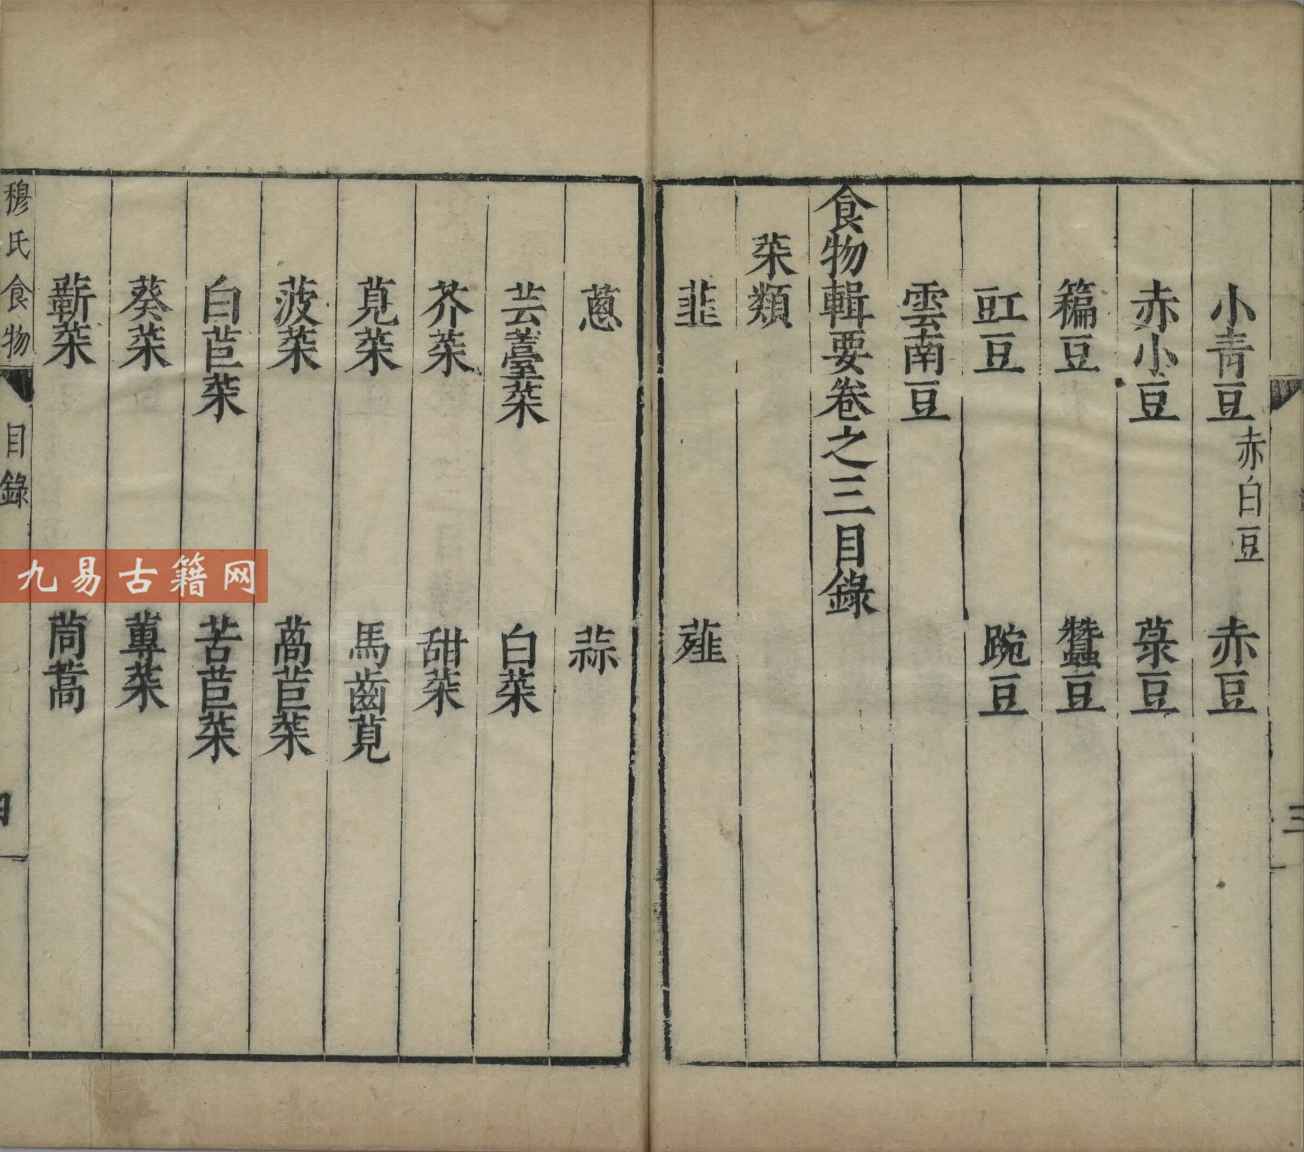 小青豆 赤白豆 赤豆
赤小豆 菉豆
稨豆 蠶豆
豇豆 豌豆
雲南豆
食物輯要卷之三目錄
菜類
韭 薤
蔥 蒜
芸薹菜 白菜
芥菜 甜菜
莧菜 馬齒莧
菠菜 萵苣菜
白苣菜 苦苣菜
葵菜 蕈菜
蘄菜 茼蒿
穆氏食物 目錄
三
九易古籍网